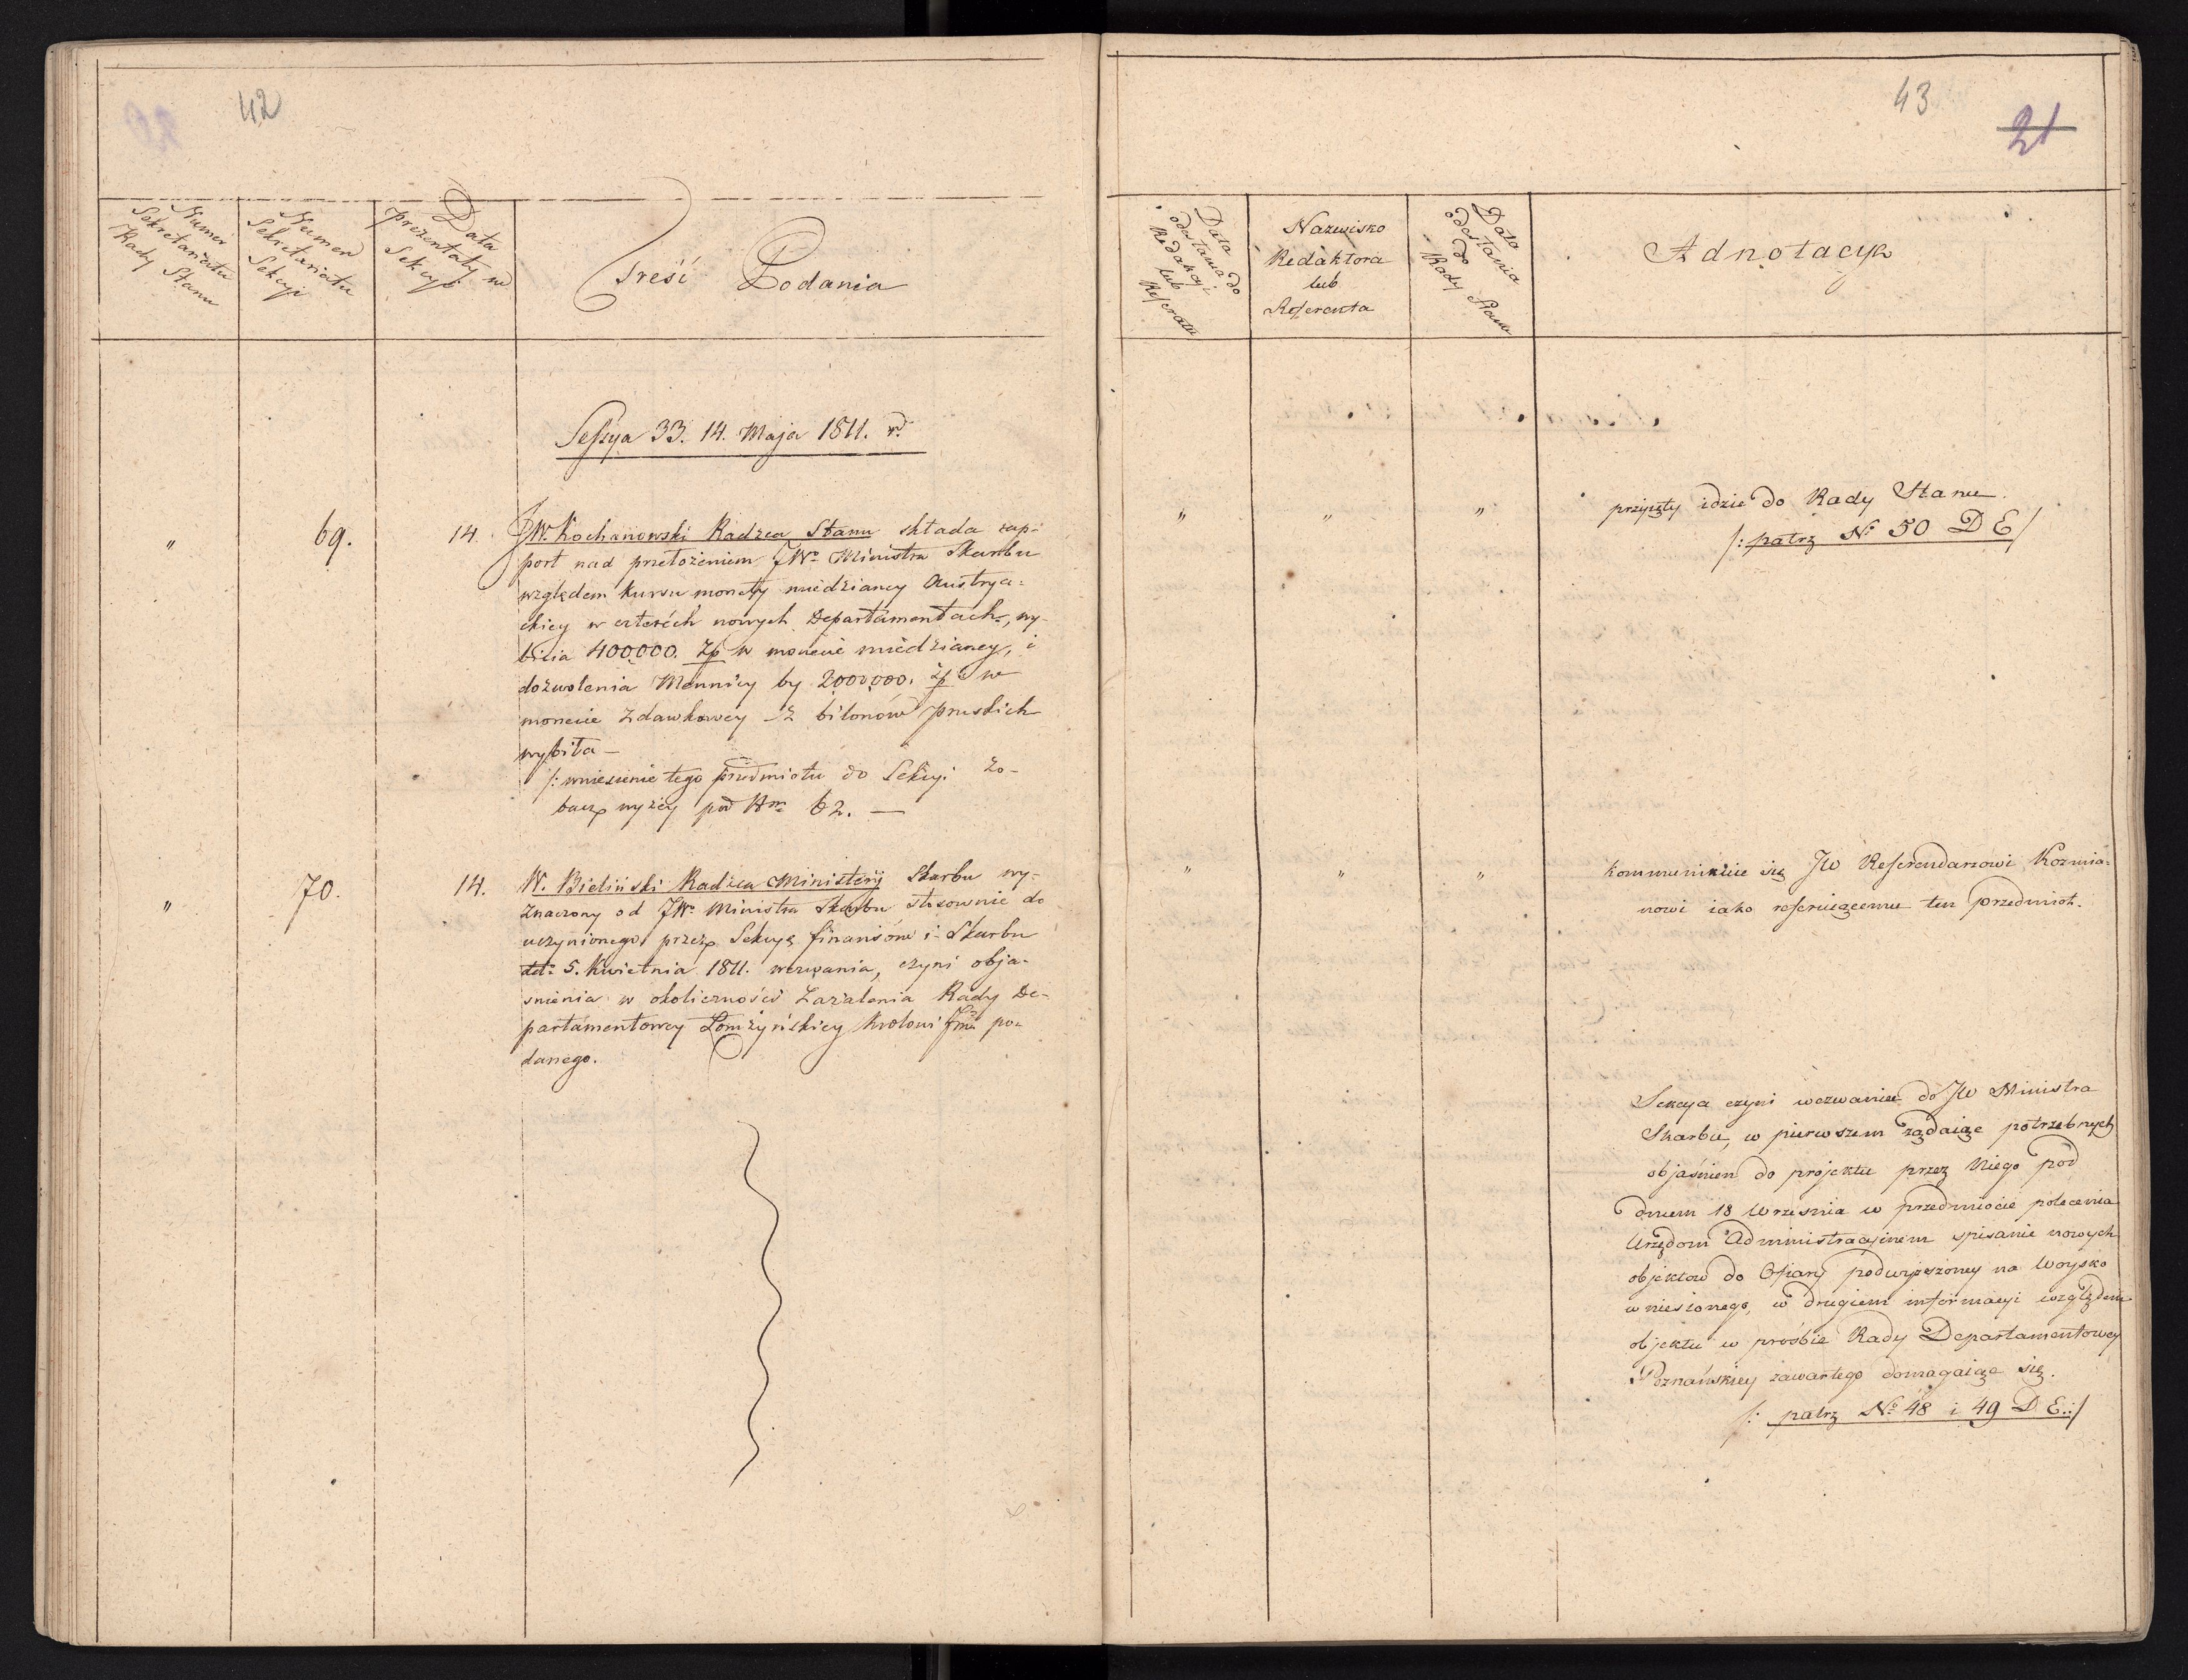 42
Numer
Sekretariatu
Rady Stanu
Numer
Sekretariatu
Sekcyi
Data
prezentaty w
Sekcyi
Treść Podania
Sessya 33. 14. Maja 1811. r.
" 69. 14. JW. Kochanowski Radzca Stanu składa rap-
port nad przełożeniem JWo Ministra Skarbu
względem kursu monety miedzianey Austrya-
ckiey w czterech nowych Departamentach, wy-
bicia 400,000. Zp w monecie miedzianey, i
dozwolenia Mennicy by 2000,000. Zp w
monecie zdawkowey z bilonów pruskich
wybiła —
/: wniesienie tego przedmiotu do Sekcyi zo-
bacz wyżey pod Nrm 62. —
" 70. 14. W. Bieliński Radzca Ministerij Skarbu wy-
znaczony od JWo Ministra Skarbu stosownie do
uczynionego przez Sekcyą finansów i Skarbu
5. Kwietnia 1811. wezwania, czyni obja-
śnienia w okoliczności Zażalenia Rady De-
partamentowey Łomżyńskiey Krolowi Jmci po-
danego.
43
21
Data
odesłania do
Redakcyi
lub
Referatu
Nazwisko
Redaktora
lub
Referenta
Data
odesłania
do
Rady Stanu
Adnotacye
" " " przyięty idzie do Rady Stanu.
/: patrz No 50 D E/
" " " Kommunikuie się JW Referendarzowi Kozmia-
nowi iako referuiącemu ten przedmiot.
Sekcya czyni wezwanie do JW Ministra
Skarbu, w pierwszem żądaiąc potrzebnych
objaśnien do projektu przez Niego pod
dniem 18 Września w przedmiocie polecenia
Urzędom Administracyinem spisanie nowych
objektow do Ofiary podwyższoney na Woysko
wniesionego, w drugiem informacyi względem
objektu w prośbie Rady Departamentowey
Poznańskiey zawartego domagaiąc się.
/: patrz No 48 i 49 D E.:/